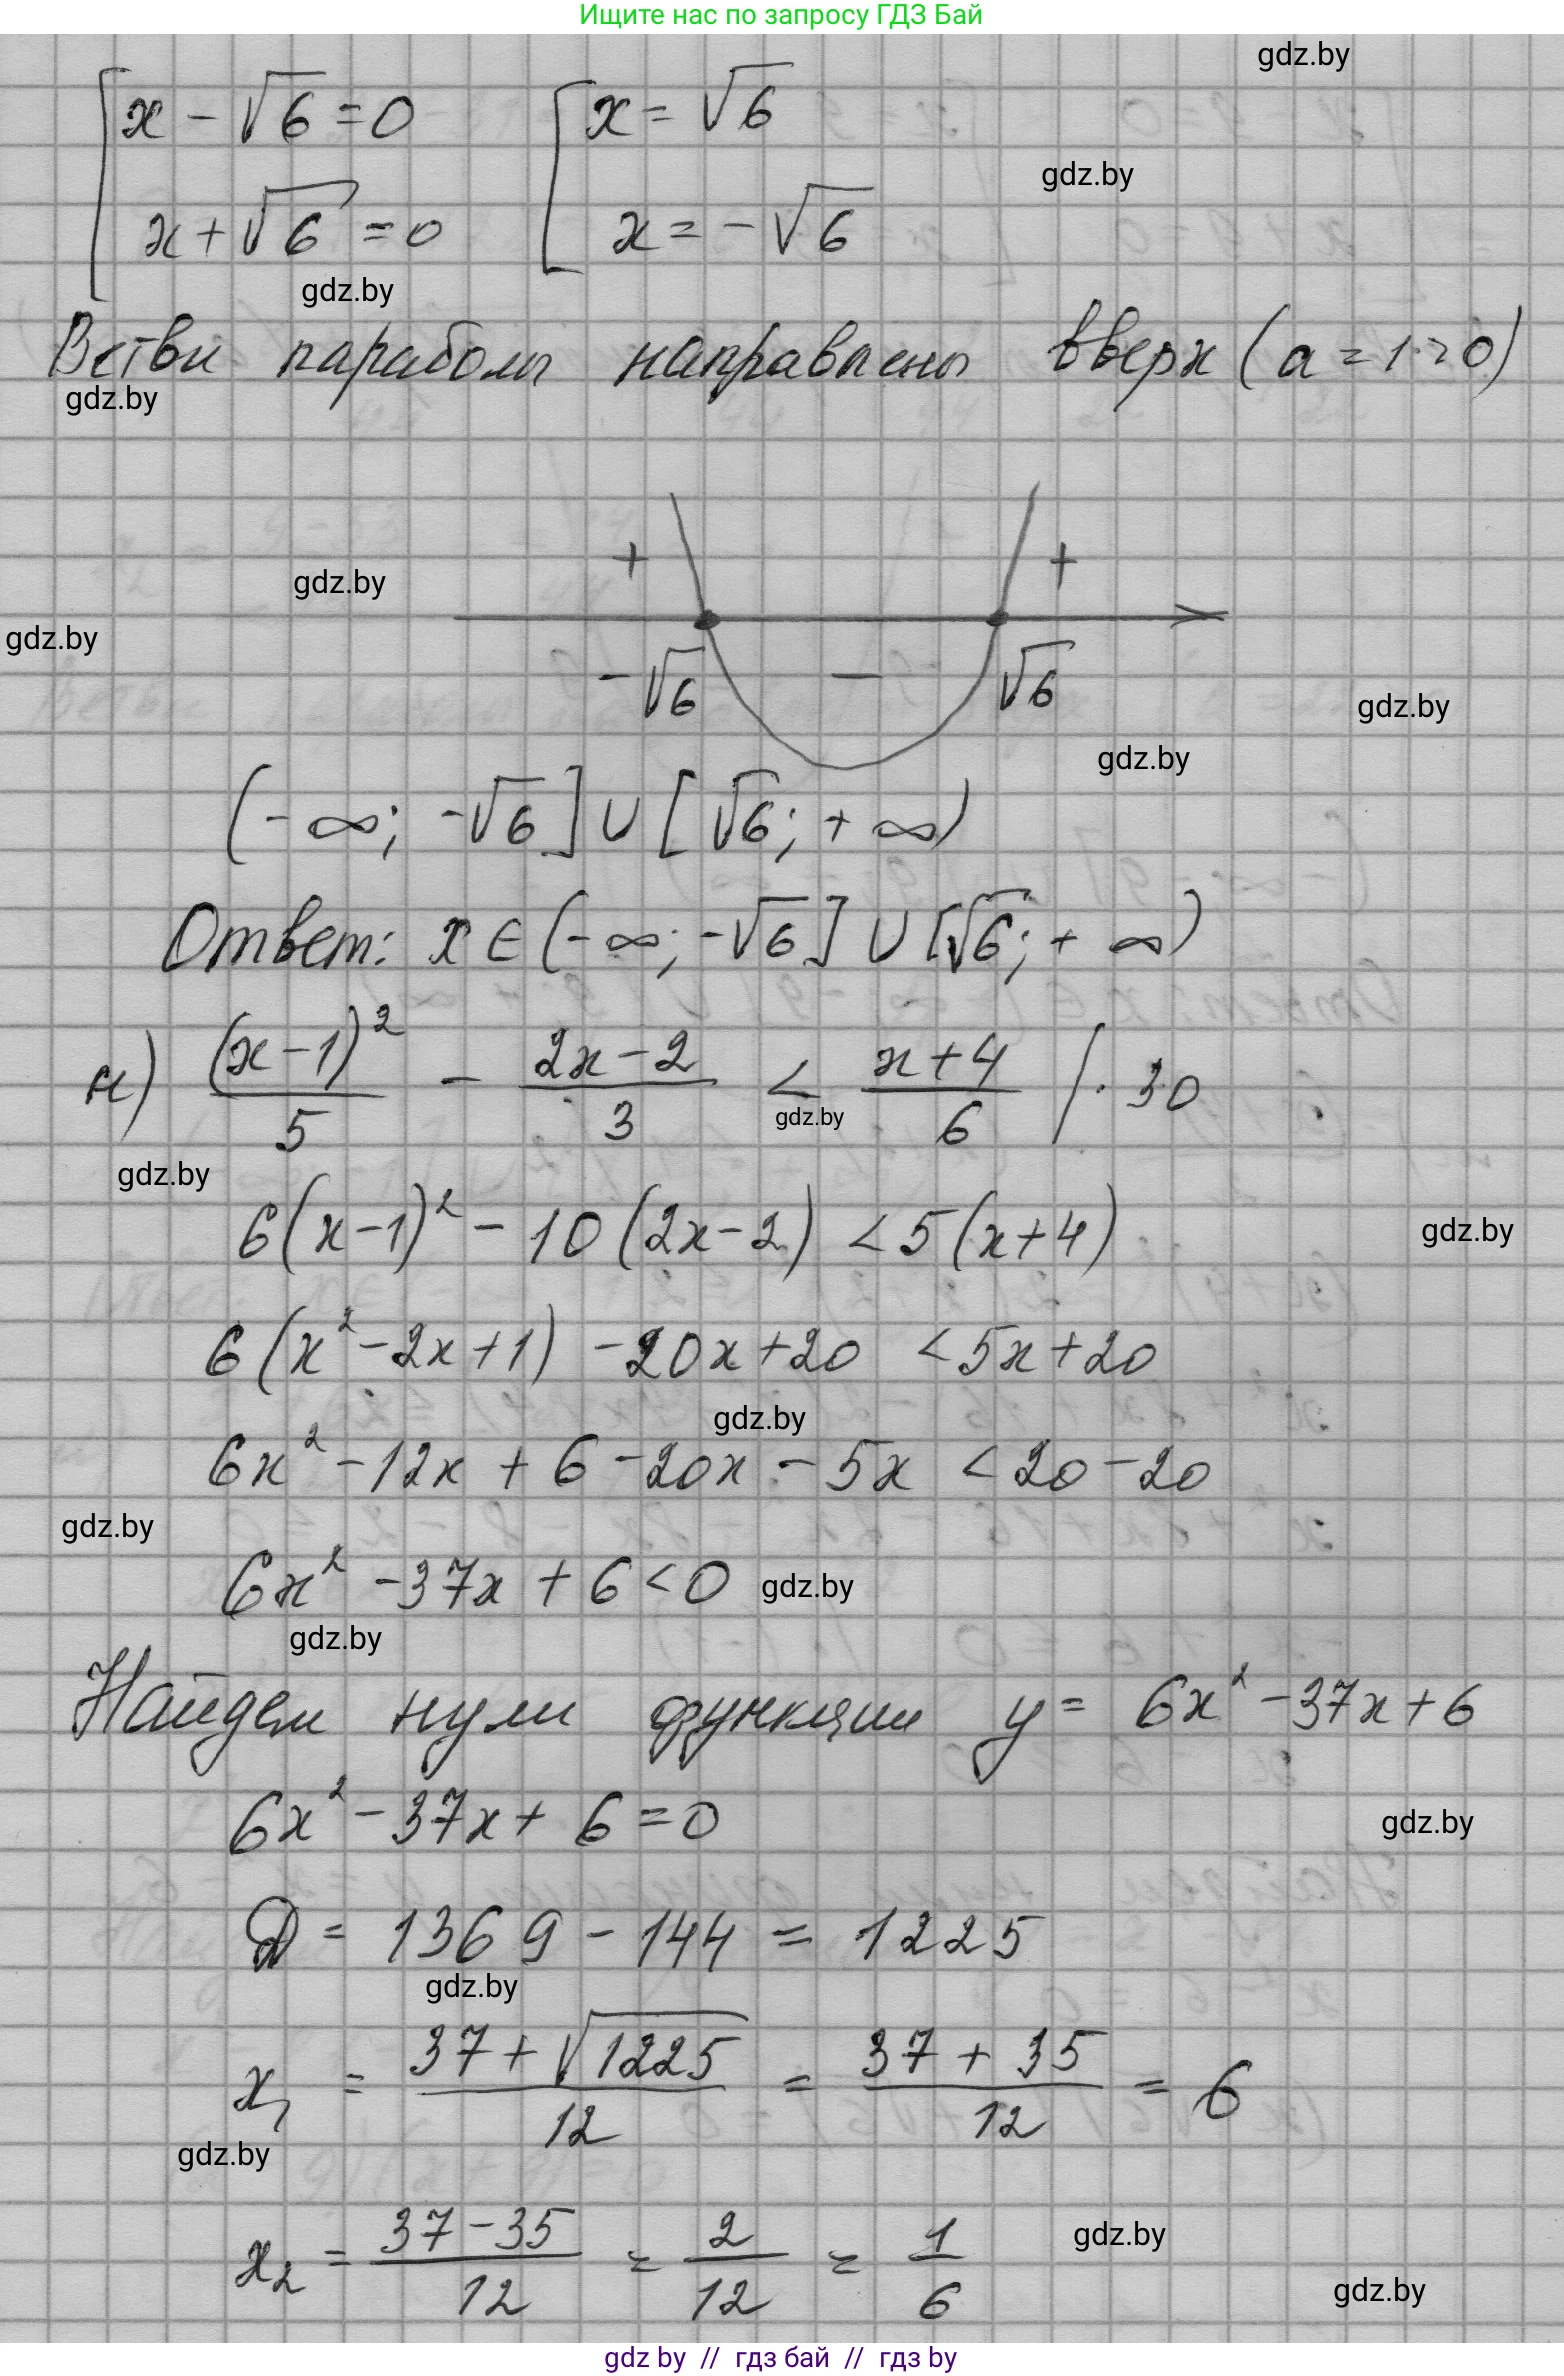 Ищите нас по запросу ГДЗ Бай
gdz.by
x - √6 = 0 x = √6
gdz.by
x + √6 = 0 x = -√6
gdz.by
Ветви параболы направлены вверх (a = 1 > 0)
gdz.by
+ +
gdz.by
gdz.by
-√6 - √6
gdz.by
gdz.by
(-∞; -√6] ∪ [√6; +∞)
Ответ: x ∈ (-∞; -√6] ∪ [√6; +∞)
к) (x-1)²/5 - (2x-2)/3 < (x+4)/6 | · 30
gdz.by
gdz.by
6(x-1)² - 10(2x-2) < 5(x+4)
gdz.by
6(x²-2x+1) - 20x + 20 < 5x + 20
gdz.by
6x² - 12x + 6 - 20x - 5x < 20 - 20
gdz.by
6x² - 37x + 6 < 0
gdz.by
gdz.by
Найдем нули функции y = 6x² - 37x + 6
6x² - 37x + 6 = 0
gdz.by
D = 1369 - 144 = 1225
gdz.by
x₁ = (37 + √1225)/12 = (37 + 35)/12 = 6
gdz.by
x₂ = (37 - 35)/12 = 2/12 = 1/6
gdz.by
gdz.by
gdz by // гдз бай // гдз by